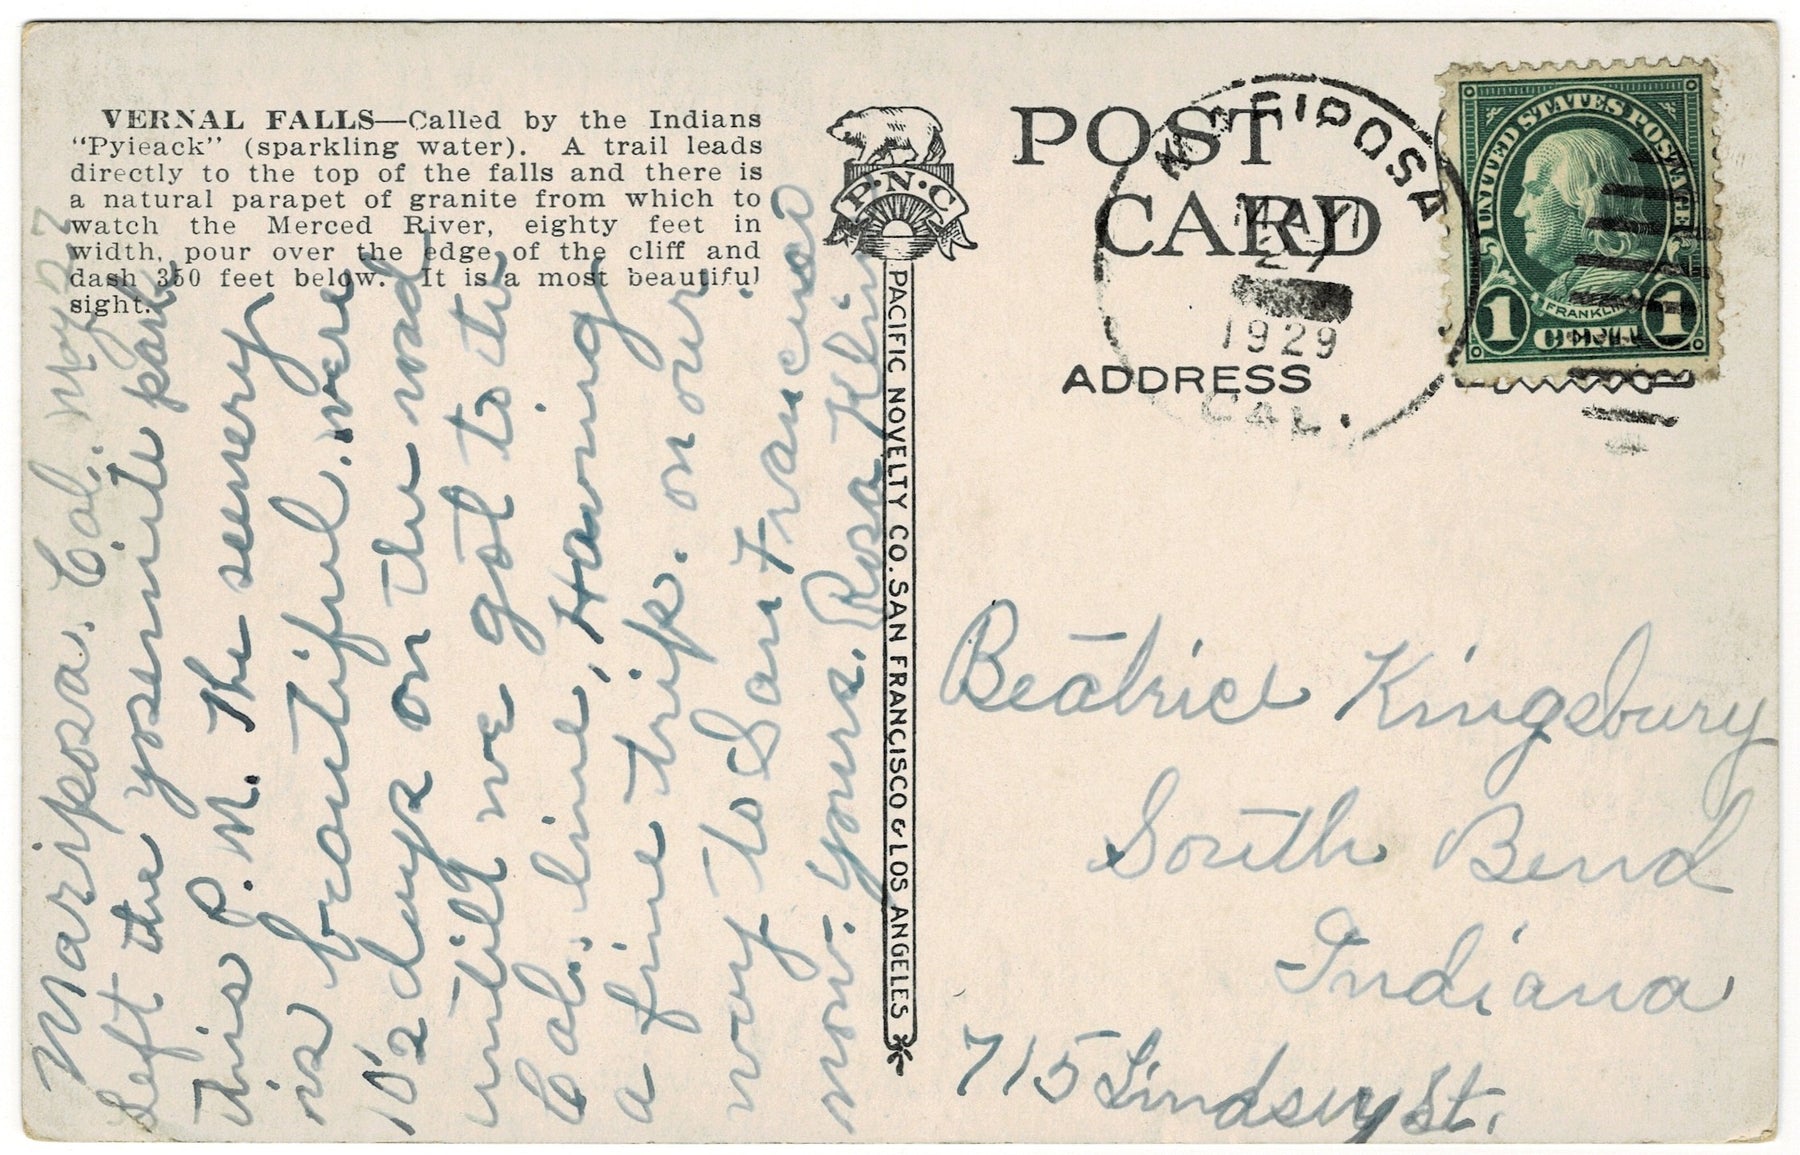 VERNAL FALLS—Called by the Indians
"Pyieack" (sparkling water). A trail leads
directly to the top of the falls and there is
a natural parapet of granite from which to
watch the Merced River, eighty feet in
width, pour over the edge of the cliff and
dash 350 feet below. It is a most beautiful
sight.
Mariposa. Cal. May 27
Left the yosemite park
this P.M. The scenery
is beautiful. were
10 days on the road
untill we got to the
Cal. line, Having
a fine trip. on our
way to San Francisco
now. yours. Rosa Kline
P·N·C
PACIFIC NOVELTY CO. SAN FRANCISCO & LOS ANGELES
POST
CARD
ADDRESS
MARIPOSA
MAY
27
1929
CAL.
UNITED STATES POSTAGE
FRANKLIN
1 1
Beatrice Kingsbury
South Bend
Indiana
715 Lindsey St.